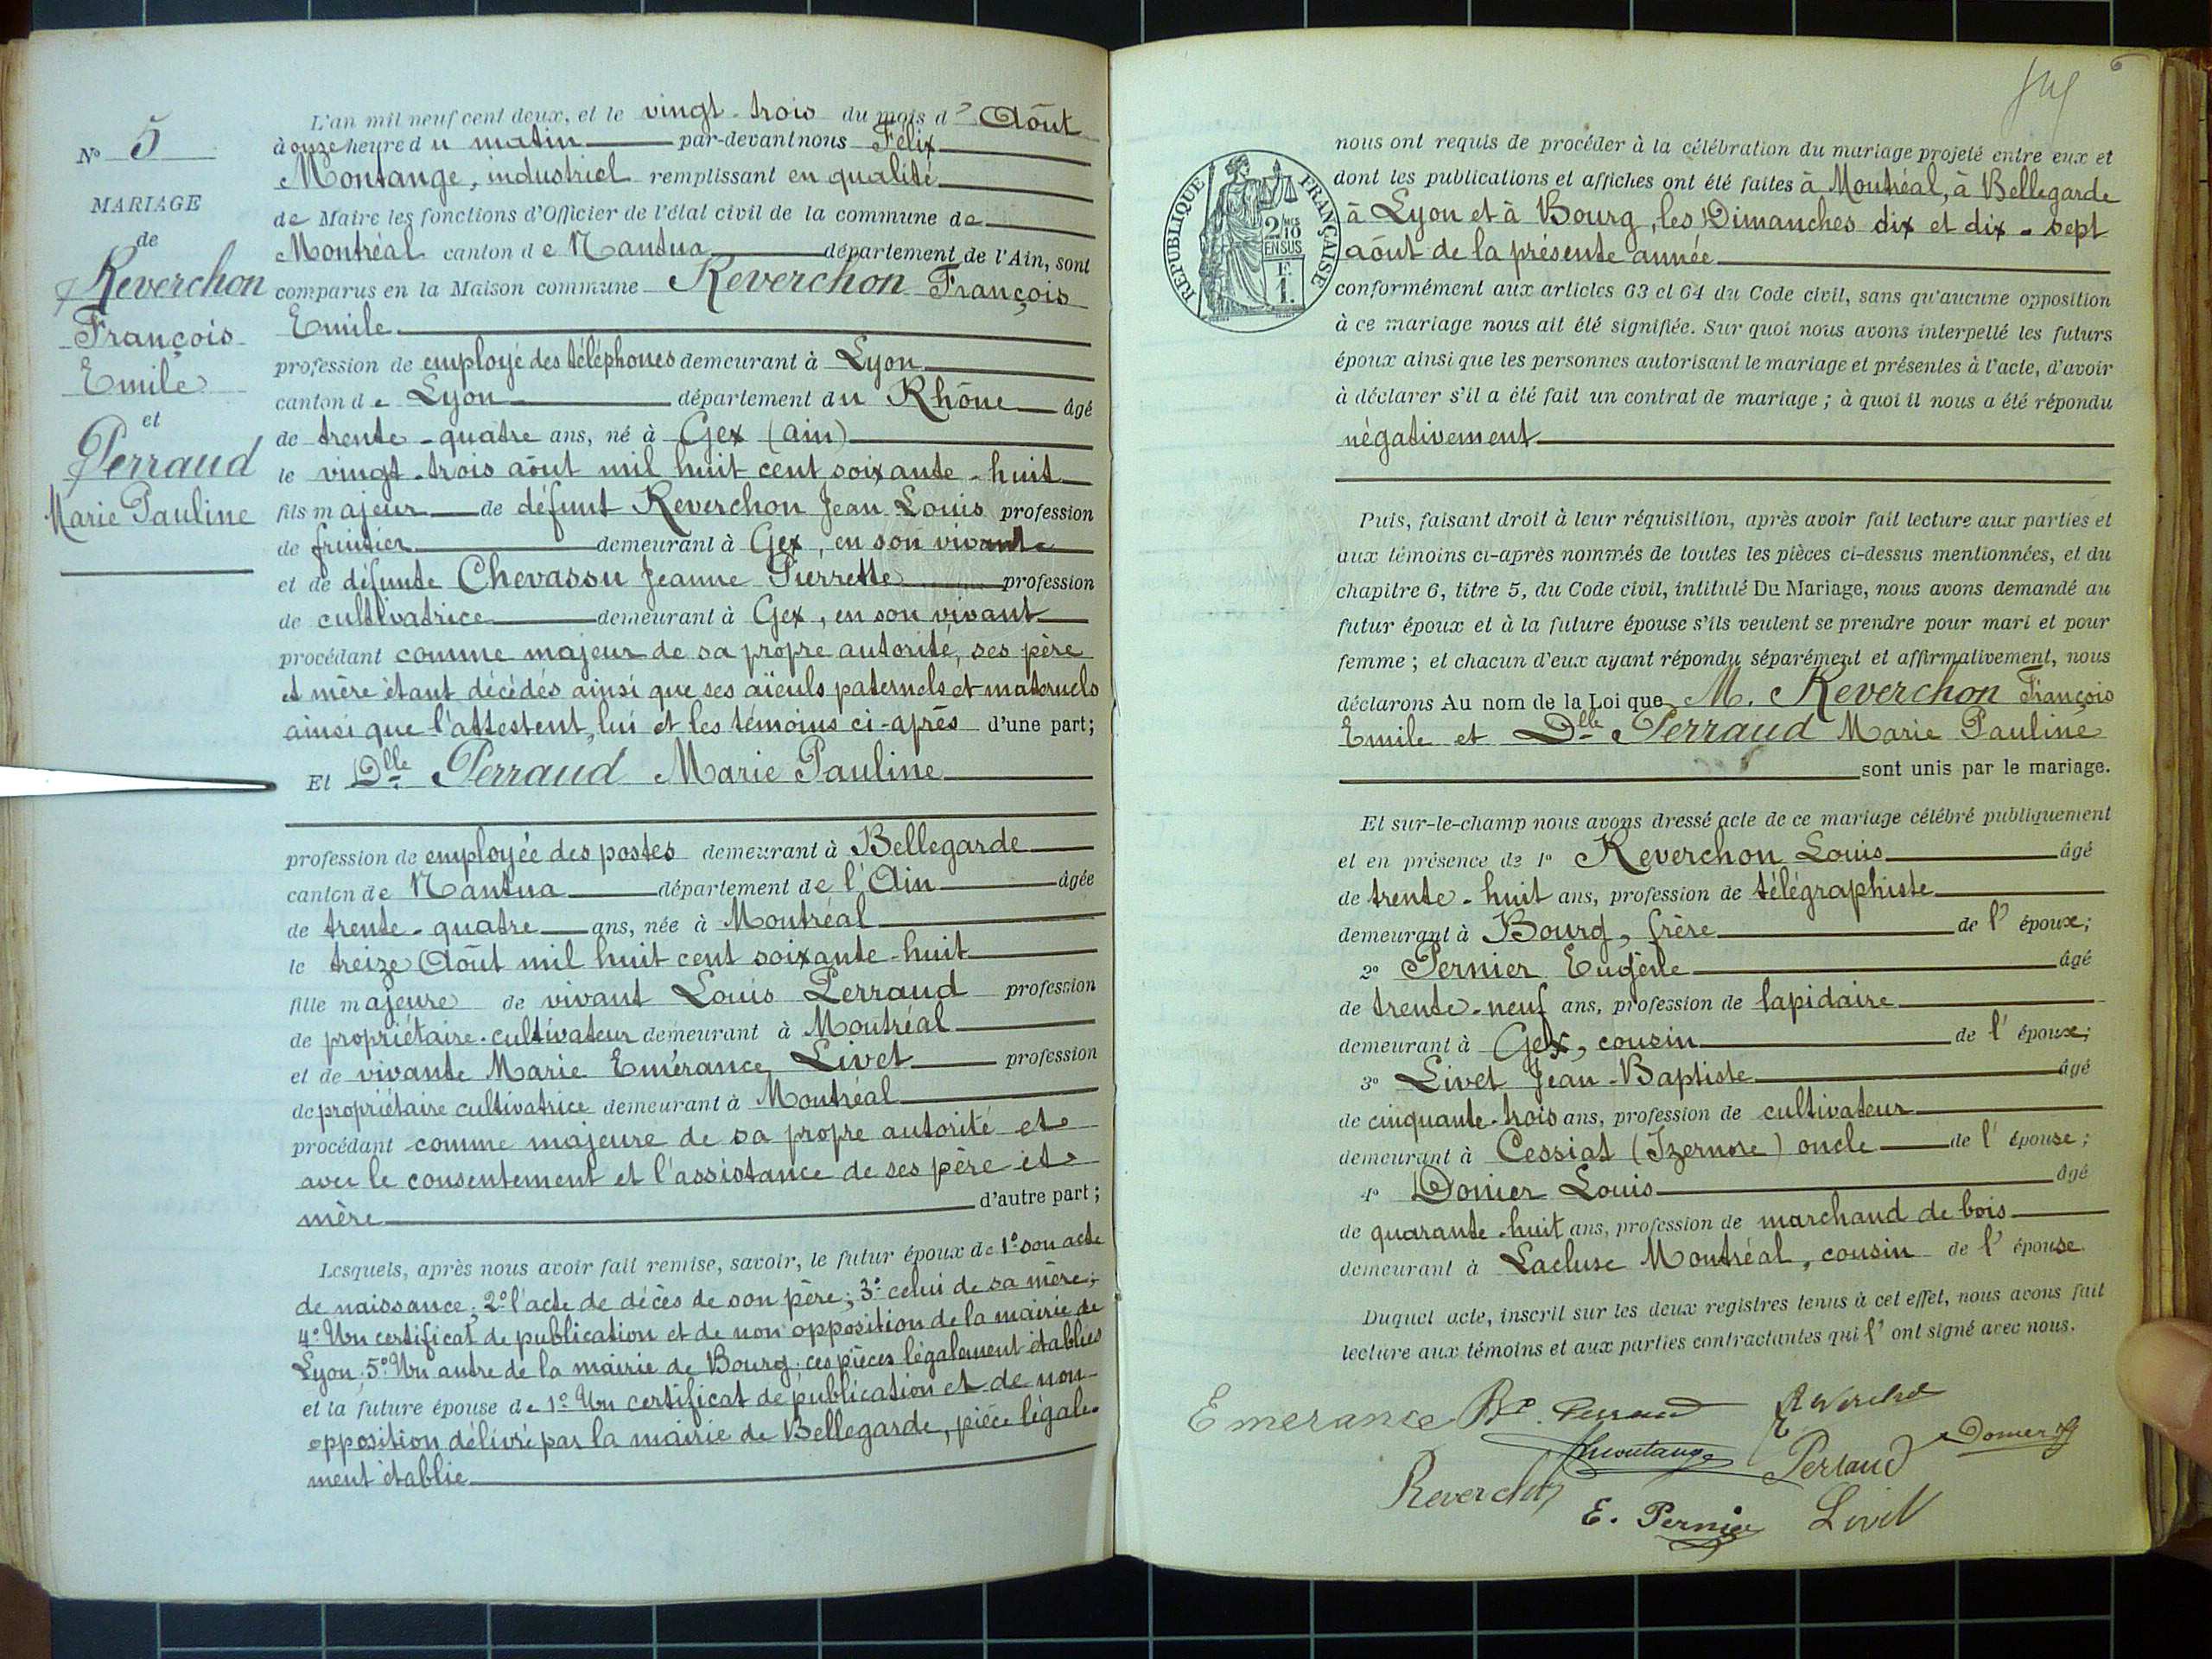 N° 5
MARIAGE
de
Reverchon
François
Emile
et
Perraud
Marie Pauline
L'an mil neuf cent deux, et le vingt-trois du mois d' Août
à onze heure du matin par-devant nous Félix
Montange, industriel remplissant en qualité
de Maire les fonctions d'Officier de l'état civil de la commune de
Montréal canton de Nantua département de l'Ain, sont
comparus en la Maison commune Reverchon François
Emile
profession de employé des téléphones demeurant à Lyon
canton de Lyon département du Rhône âgé
de trente-quatre ans, né à Gex (Ain)
le vingt-trois août mil huit cent soixante-huit
fils majeur de défunt Reverchon Jean Louis profession
de fruitier demeurant à Gex, en son vivant
et de défunte Chevassu Jeanne Pierrette profession
de cultivatrice demeurant à Gex, en son vivant
procédant comme majeur de sa propre autorité, ses père
et mère étant décédés ainsi que ses aïeuls paternels et maternels
ainsi que l'attestent, lui et les témoins ci-après d'une part;
Et Dlle Perraud Marie Pauline
profession de employée des postes demeurant à Bellegarde
canton de Nantua département de l'Ain âgée
de trente-quatre ans, née à Montréal
le treize Août mil huit cent soixante-huit
fille majeure de vivant Louis Perraud profession
de propriétaire-cultivateur demeurant à Montréal
et de vivante Marie Emérance Livet profession
de propriétaire cultivatrice demeurant à Montréal
procédant comme majeure de sa propre autorité et
avec le consentement et l'assistance de ses père et
mère d'autre part;
Lesquels, après nous avoir fait remise, savoir, le futur époux de 1° son acte
de naissance; 2° l'acte de décès de son père; 3° celui de sa mère;
4° Un certificat de publication et de non opposition de la mairie de
Lyon; 5° Un autre de la mairie de Bourg; ces pièces légalement établies
et la future épouse de 1° Un certificat de publication et de non-
opposition délivré par la mairie de Bellegarde, pièce légale-
ment établie
6
RÉPUBLIQUE FRANÇAISE
2/10 MES
EN SUS
F.
1.
nous ont requis de procéder à la célébration du mariage projeté entre eux et
dont les publications et affiches ont été faites à Montréal, à Bellegarde
à Lyon et à Bourg, les Dimanches dix et dix-sept
août de la présente année
conformément aux articles 63 et 64 du Code civil, sans qu'aucune opposition
à ce mariage nous ait été signifiée. Sur quoi nous avons interpellé les futurs
époux ainsi que les personnes autorisant le mariage et présentes à l'acte, d'avoir
à déclarer s'il a été fait un contrat de mariage; à quoi il nous a été répondu
négativement
Puis, faisant droit à leur réquisition, après avoir fait lecture aux parties et
aux témoins ci-après nommés de toutes les pièces ci-dessus mentionnées, et du
chapitre 6, titre 5, du Code civil, intitulé Du Mariage, nous avons demandé au
futur époux et à la future épouse s'ils veulent se prendre pour mari et pour
femme; et chacun d'eux ayant répondu séparément et affirmativement, nous
déclarons Au nom de la Loi que M. Reverchon François
Emile et Dlle Perraud Marie Pauline
sont unis par le mariage.
Et sur-le-champ nous avons dressé acte de ce mariage célébré publiquement
et en présence de 1° Reverchon Louis âgé
de trente-huit ans, profession de télégraphiste
demeurant à Bourg, frère de l'époux;
2° Pernier Eugène âgé
de trente-neuf ans, profession de lapidaire
demeurant à Gex, cousin de l'époux;
3° Livet Jean-Baptiste âgé
de cinquante-trois ans, profession de cultivateur
demeurant à Cessiat (Izernore) oncle de l'épouse;
4° Donier Louis âgé
de quarante-huit ans, profession de marchand de bois
demeurant à Lacluse Montréal, cousin de l'épouse
Duquel acte, inscrit sur les deux registres tenus à cet effet, nous avons fait
lecture aux témoins et aux parties contractantes qui l'ont signé avec nous.
Emerance Perraud Reverchon
Montange Perraud Donier
Reverchon E. Pernier Livet